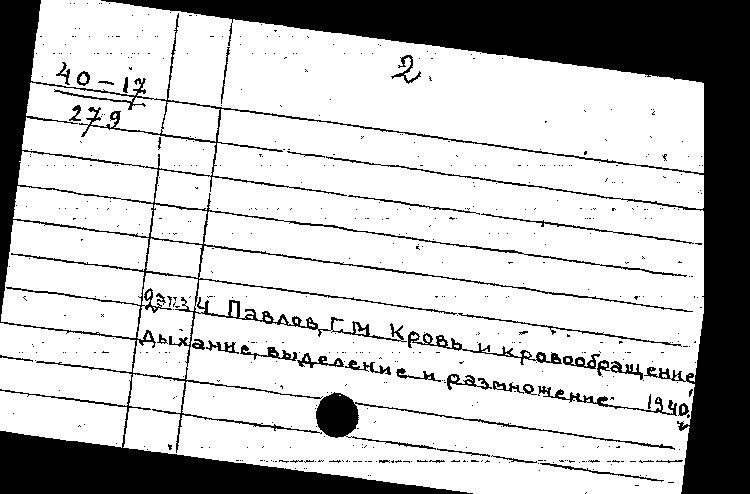 2.
40-17
279
2 экз Ч Павлов, Г.М. Кровь и кровообращение,
дыхание, выделение и размножение. 1940.